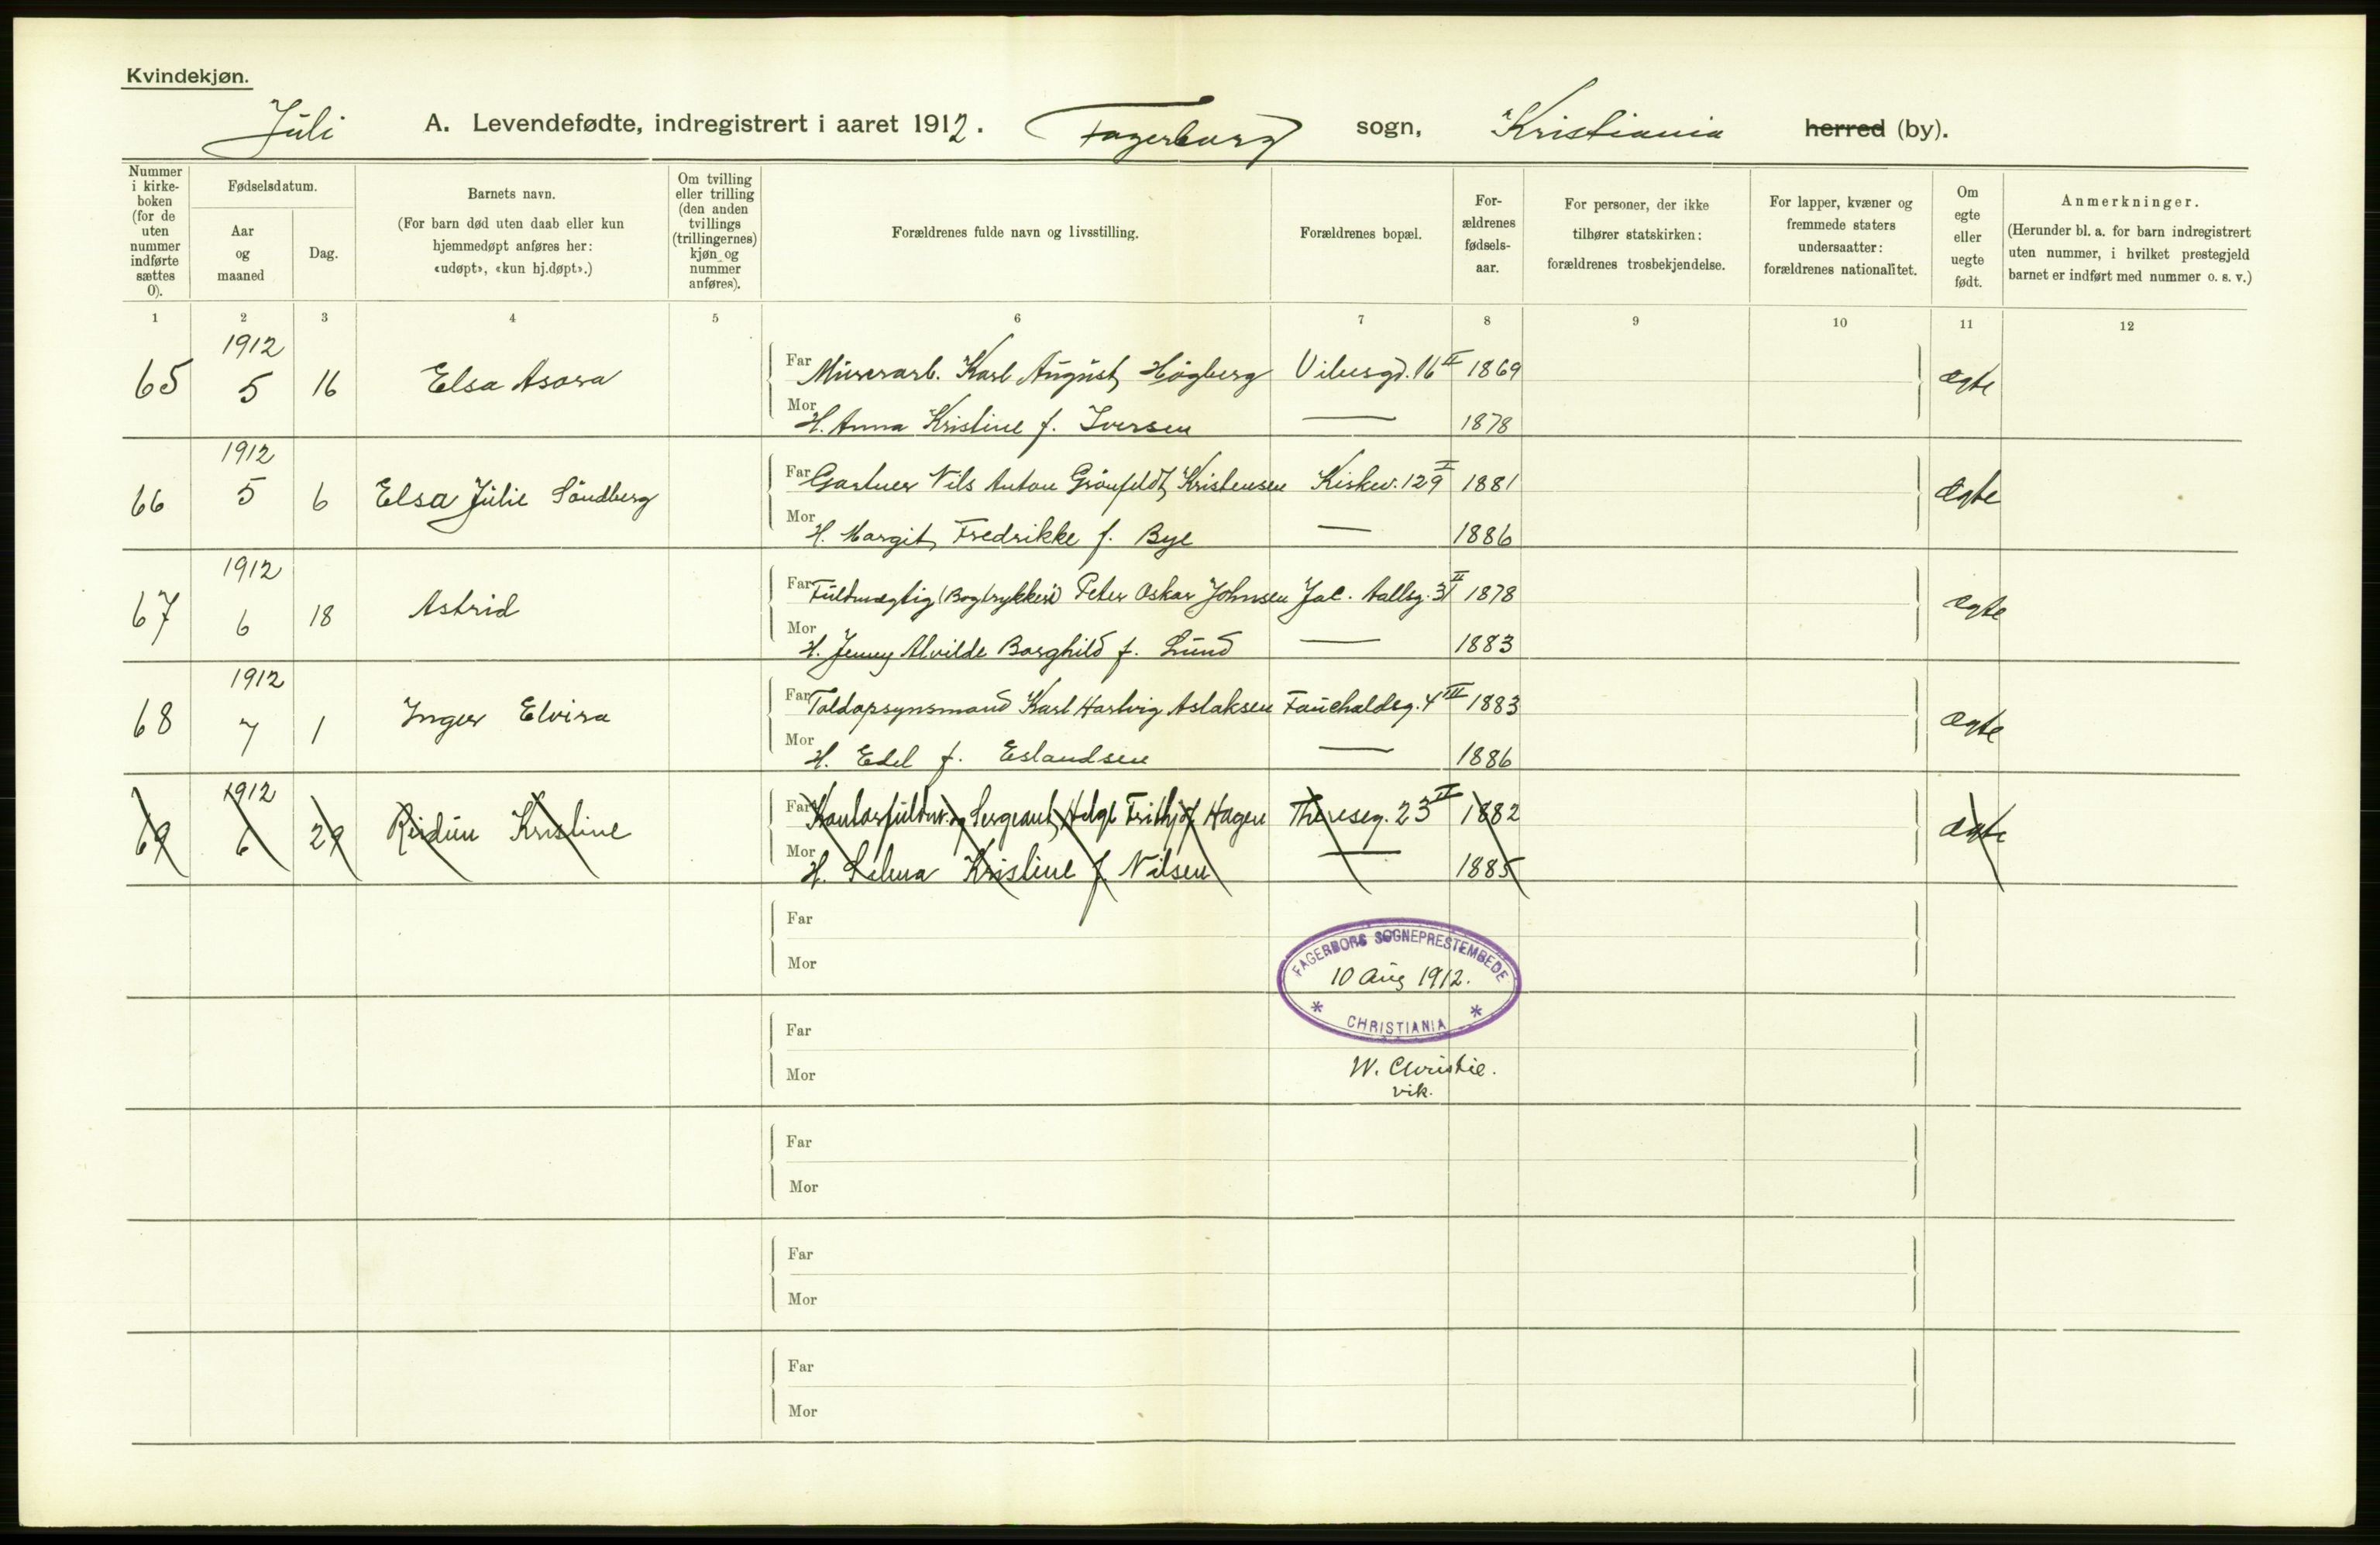 Kvindekjøn.
Juli A. Levendefødte, indregistrert i aaret 1912. Fagerborg sogn, Kristiania herred (by).
Nummer i kirke-boken (for de uten nummer indførte sættes 0).
Fødselsdatum.
Aar og maaned
Dag.
Barnets navn.
(For barn død uten daab eller kun hjemmedøpt anføres her: «udøpt», «kun hj.døpt».)
Om tvilling eller trilling (den anden tvillings (trillingernes) kjøn og nummer anføres).
Forældrenes fulde navn og livsstilling.
Forældrenes bopæl.
For-ældrenes fødsels-aar.
For personer, der ikke tilhører statskirken: forældrenes trosbekjendelse.
For lapper, kvæner og fremmede staters undersaatter: forældrenes nationalitet.
Om egte eller uegte født.
Anmerkninger.
(Herunder bl. a. for barn indregistrert uten nummer, i hvilket prestegjeld barnet er indført med nummer o. s. v.)
1 2 3 4 5 6 7 8 9 10 11 12
65 1912 5 16 Elsa Asora Far Murerarb. Karl August Högberg Vibesgd. 16 II 1869 ægte
Mor H. Anna Kristine f. Iversen — 1878
66 1912 5 6 Elsa Julie Söndberg Far Gartner Nils Anton Grönfeldt Kristensen Kirkev. 129 I 1881 ægte
Mor H. Margit Fredrikke f. Bye — 1886
67 1912 6 18 Astrid Far Fuldmægtig (Bogtrykkeri) Peter Oskar Johnsen Jac. Aallsg. 31 II 1878 ægte
Mor H. Jenny Alvilde Borghild f. Lund — 1883
68 1912 7 1 Inger Elvira Far Toldopsynsmand Karl Hartvig Aslaksen Fauchaldsg. 4 III 1883 ægte
Mor H. Edel f. Eslandsen — 1886
69 1912 6 29 Reidun Kristine Far Kontorfuldm. og Sergeant Helge Frithjof Hagen Theresesg. 23 II 1882 ægte
Mor H. Selma Kristine f. Nilsen — 1885
Far
Mor
FAGERBORG SOGNEPRESTEMBEDE
10 Aug 1912.
* CHRISTIANIA *
Far
Mor
W. Christie.
vik.
Far
Mor
Far
Mor
Far
Mor